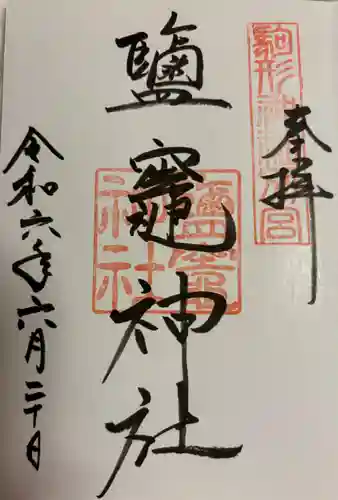 奉拝
鹽竈神社
令和六年六月二十日
駒形神社
鹽竈神社